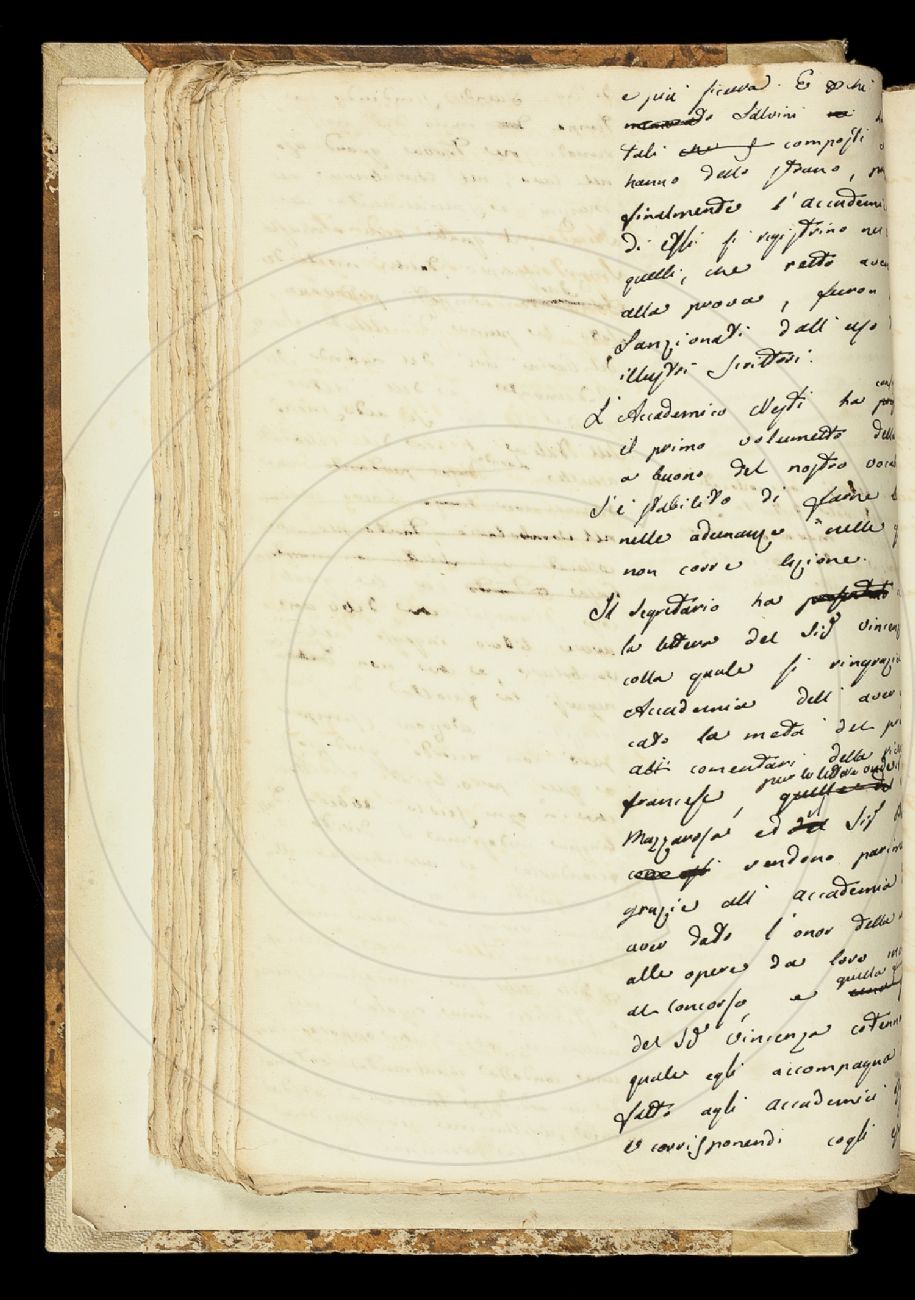 e più sicura. E
Salvini
tali composti
hanno dello strano,
finalmente l'accademi
di essi si registrino nel
quelli, che retto aven
alla prova, furon
sanzionati dall'uso d
illustri Scrittori.
L'Accademico Nesti ha
il primo volumetto della
a buono del nostro vocab
S'è stabilito di farne
nelle adunanze nelle q
non corre lezione.
Il Segretario ha
la lettera del Sig. Vincenz
colla quale si ringrazia
Accademia dell'aver
cato la metà del pr
ai comentari della
francese, per le lettere onde
Mazzarosa, ed Sig.
vendono parim
grazie all' accademia
aver dato l'onor della
alle opere da loro
al concorso, e quella
del Sig. Vincenzo
quale egli accompagna
fatto agli accademici
e corrispondenti cogli